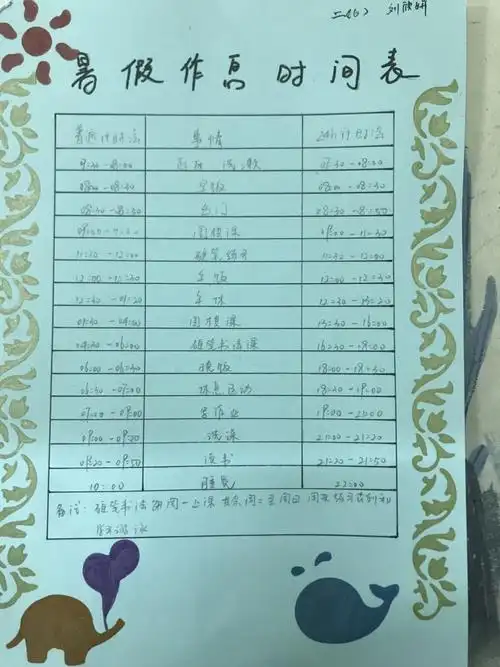 二(6) 刘欣妍
暑假作息时间表
普通计时法 事情 24时计时法
7:30-08:00 起床 洗漱 07:30-08:30
08:00-08:30 早饭 08:00-08:30
08:30-08:50 出门 08:30-08:50
围棋课 09:00-11:30
11:30-12:00 硬笔练习 11:30-12:00
12:00-12:30 午饭 12:00-12:30
12:30-01:20 午休 12:30-13:20
01:30-04:00 围棋课 13:30-16:00
04:30-06:00 硬笔书法课 16:30-18:00
06:00-06:30 晚饭 18:00-18:30
06:30-07:00 休息运动 18:30-19:00
07:00-09:00 写作业 19:00-21:00
09:00-09:20 洗澡 21:00-21:20
09:20-09:50 读书 21:20-21:50
10:00 睡觉 22:00
备注: 硬笔书法 周一上课 其余周二至周日
学习游泳